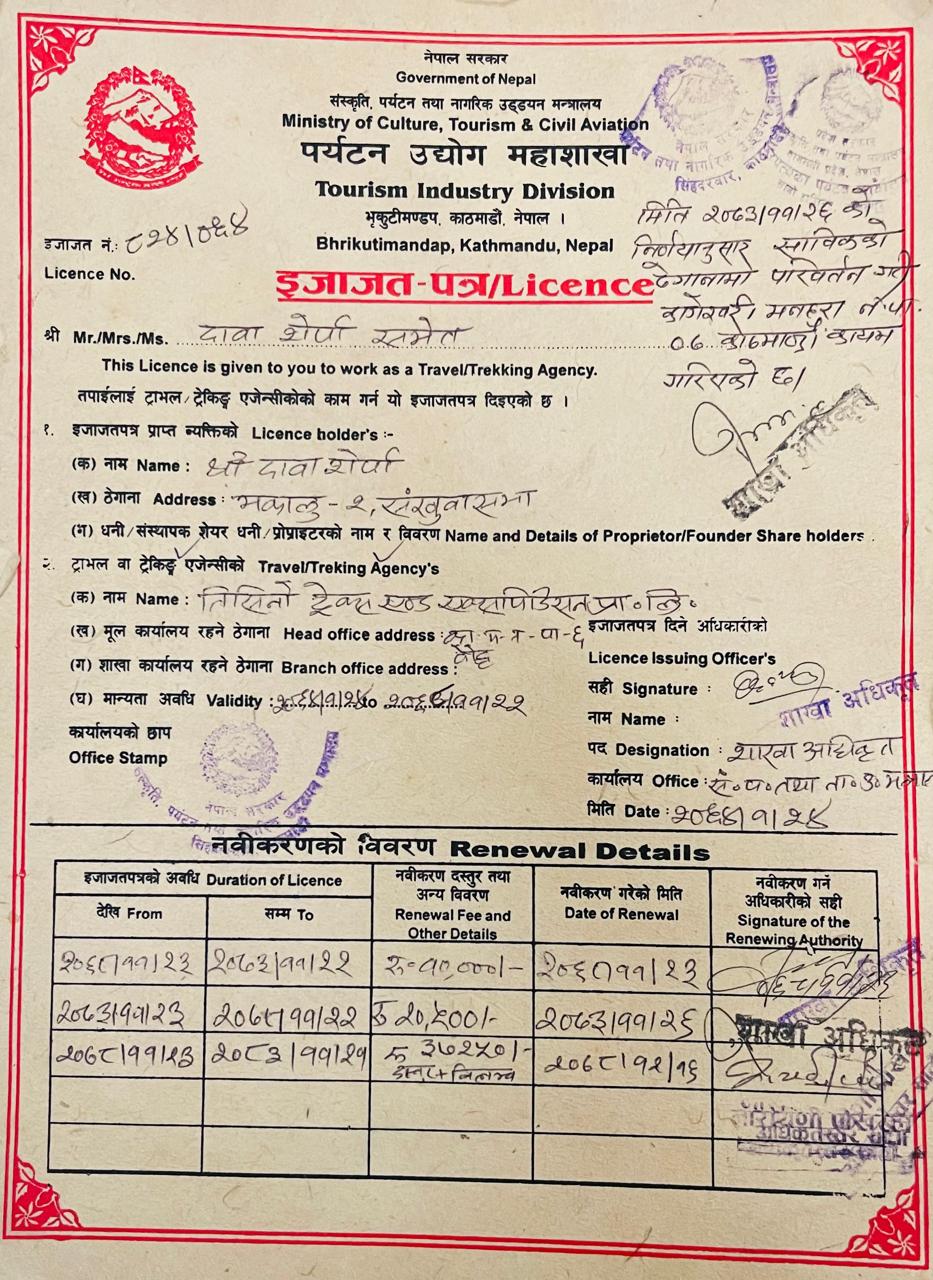 नेपाल सरकार
Government of Nepal
संस्कृति, पर्यटन तथा नागरिक उड्डयन मन्त्रालय
Ministry of Culture, Tourism & Civil Aviation
पर्यटन उद्योग महाशाखा
Tourism Industry Division
भृकुटीमण्डप, काठमाडौं, नेपाल ।
Bhrikutimandap, Kathmandu, Nepal
इजाजत नं.: ८२४/०६४
Licence No.
इजाजत-पत्र/Licence
मिति २०७३/११/२६ को
निर्णयानुसार साविकको
ठेगानामा परिवर्तन गरी
कागेश्वरी मनहरा न.पा.
०७ काठमाडौं कायम
गरिएको छ।
शाखा अधिकृत
श्री Mr./Mrs./Ms. दावा शेर्पा समेत
This Licence is given to you to work as a Travel/Trekking Agency.
तपाईलाई ट्राभल/ट्रेकिङ्ग एजेन्सीकोको काम गर्न यो इजाजतपत्र दिइएको छ ।
१. इजाजतपत्र प्राप्त ब्यक्तिको Licence holder's :-
(क) नाम Name : श्री दावा शेर्पा
(ख) ठेगाना Address : मकालु - २, संखुवासभा
(ग) धनी/संस्थापक शेयर धनी/प्रोप्राइटरको नाम र विवरण Name and Details of Proprietor/Founder Share holders :
२. ट्राभल वा ट्रेकिङ्ग एजेन्सीको Travel/Treking Agency's
(क) नाम Name : तिसिनो ट्रेक्स एण्ड एक्सपिडिसन प्रा.लि.
(ख) मूल कार्यालय रहने ठेगाना Head office address : का.म.न.पा-६
(ग) शाखा कार्यालय रहने ठेगाना Branch office address :
(घ) मान्यता अवधि Validity : to
कार्यालयको छाप
Office Stamp
इजाजतपत्र दिने अधिकारीको
Licence Issuing Officer's
सही Signature :
शाखा अधिकृत
नाम Name :
पद Designation : शाखा अधिकृत
कार्यालय Office :
मिति Date : २०६४/१/२४
नवीकरणको विवरण Renewal Details
इजाजतपत्रको अवधि Duration of Licence
देखि From
सम्म To
नवीकरण दस्तुर तथा
अन्य विवरण
Renewal Fee and
Other Details
नवीकरण गरेको मिति
Date of Renewal
नवीकरण गर्ने
अधिकारीको सही
Signature of the
Renewing Authority
२०६८/११/२३ २०७३/११/२२ रु=१०,०००/- २०६८/११/२३
२०७३/११/२३ २०७८/११/२२ रु २०,५००/- २०७३/११/२६
शाखा अधिकृत
२०७८/११/२३ २०८३/११/२१ रु ३७२५०/- २०७८/१२/१६